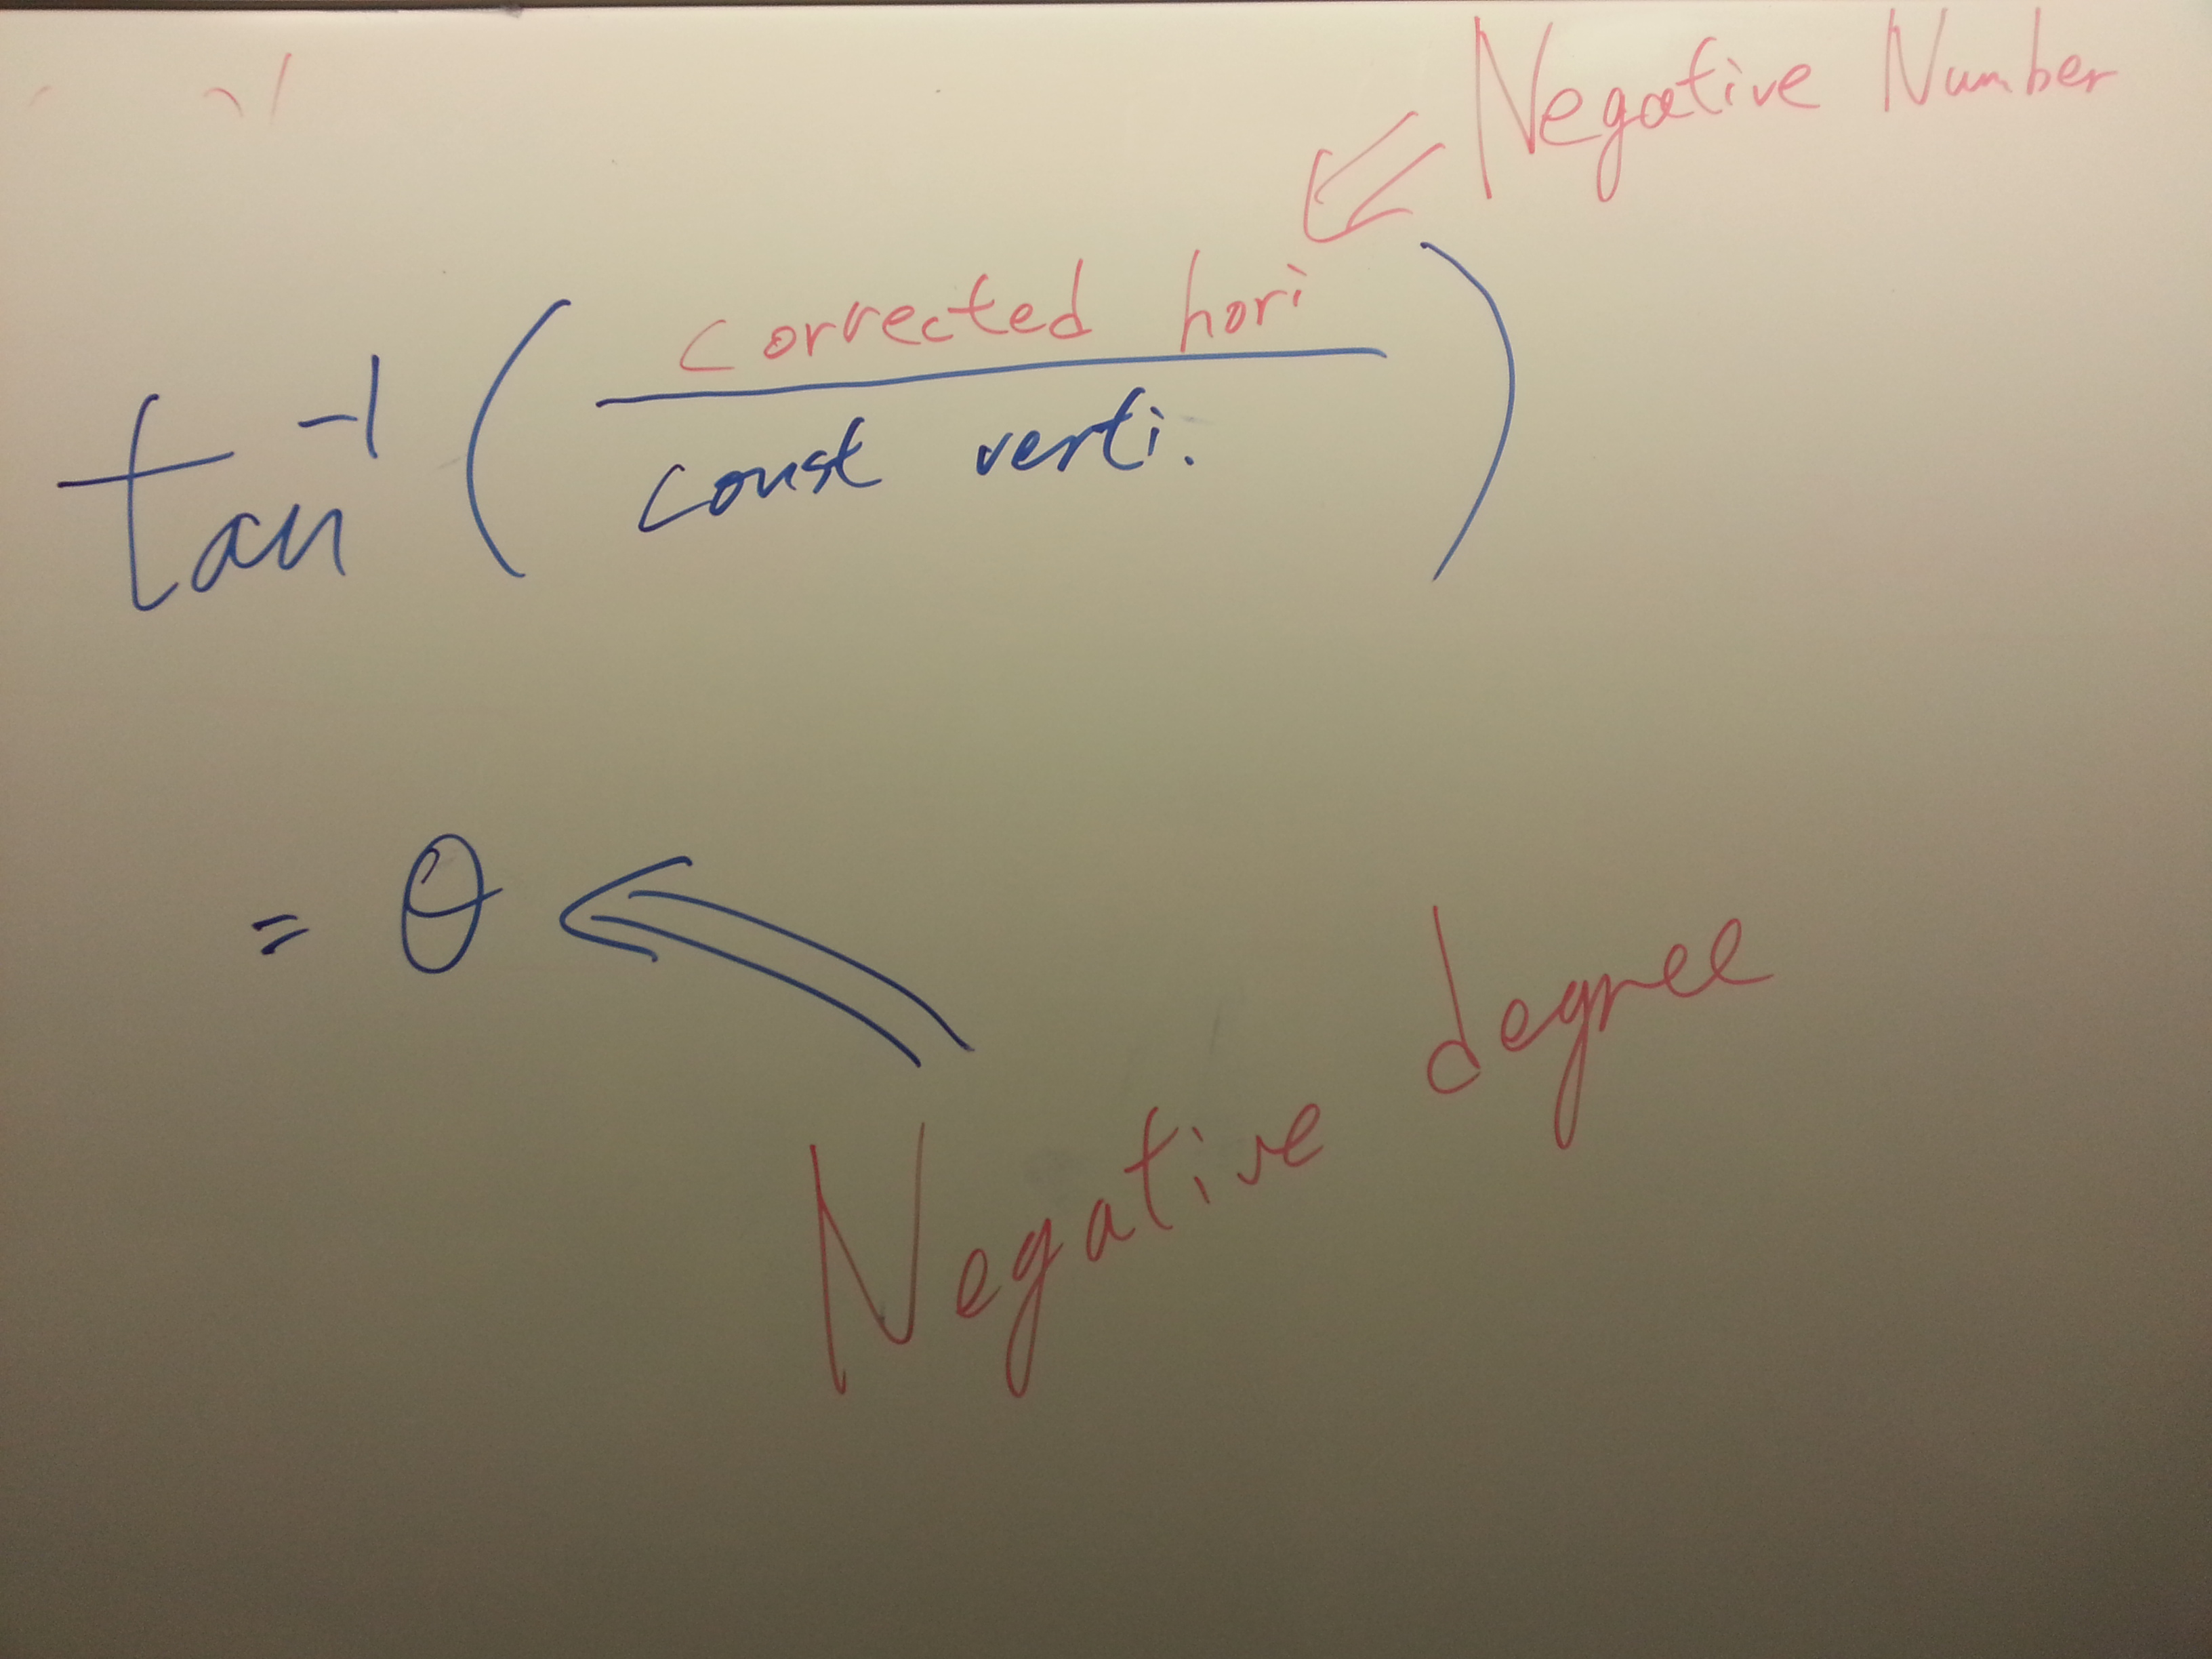 Negative Number
tan⁻¹ ( corrected hori
const verti. )
= θ
Negative degree